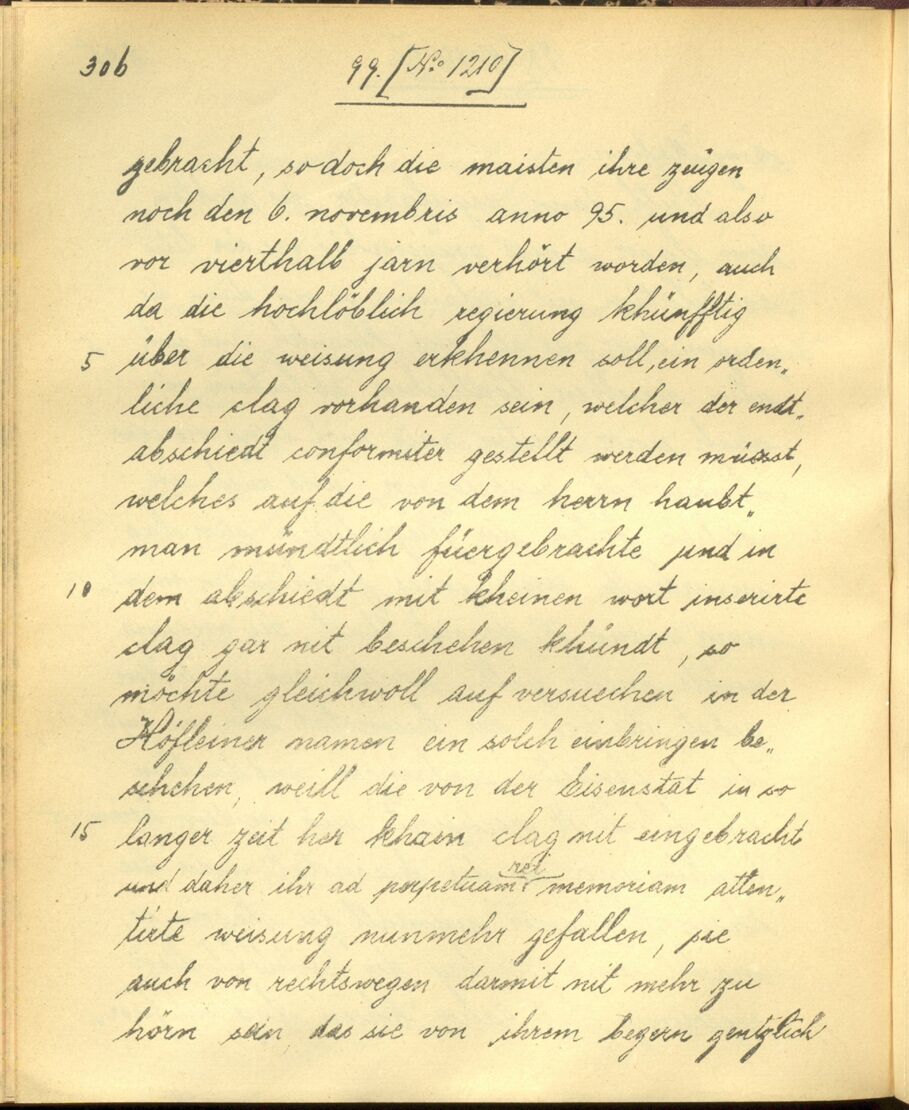 306
99. [No 1210]
gebracht, so doch die maisten ihre zeügen
noch den 6. novembris anno 95. und also
vor vierthalb jarn verhört worden, auch
da die hochlöblich regierung khünfftig
5 über die weisung erkhennen soll, ein orden„
liche clag vorhanden sein, welcher der endt„
abschiedt conformiter gestellt werden müesst,
welches auf die von dem herrn haubt„
man mündtlich füergebrachte und in
10 dem abschiedt mit kheinen wort inserirte
clag gar nit beschehen khündt, so
möchte gleichwoll auf versuechen in der
Höfleiner namen ein solch einbringen be„
schehen, weill die von der Eisenstat in so
15 langer zeit her khain clag nit eingebracht
und daher ihr ad perpetuam rei memoriam atten„
tirte weisung nunmehr gefallen, sie
auch von rechtswegen darmit nit mehr zu
hörn sein, das sie von ihrem begern gentzlich